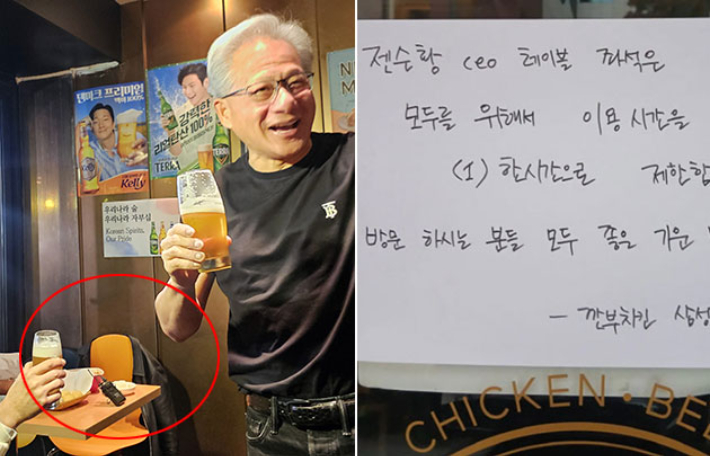 덴마크 프리미엄
맥아 100%
Kelly
강력한
리얼탄산 100%
TERRA
우리나라 술
우리나라 자부심
Korean Spirits,
Our Pride
젠슨황 CEO 테이블 좌석은
모두를 위해서 이용 시간을
(1) 한시간으로 제한합
방문 하시는 분들 모두 좋은 기운
- 깐부치킨 삼성
CHICKEN • BEE